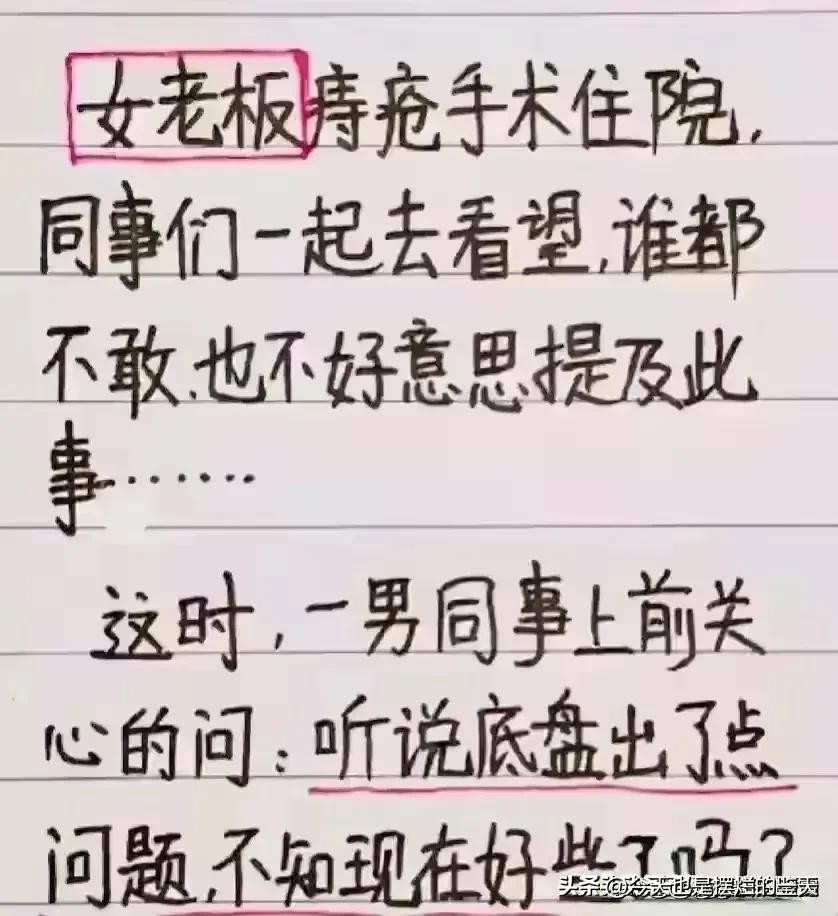 女老板痔疮手术住院,
同事们一起去看望,谁都
不敢.也不好意思提及此
事·······
这时,一男同事上前关
心的问:听说底盘出了点
问题,不知现在好些了吗?
头条@冷天也是摆烂的蓝天